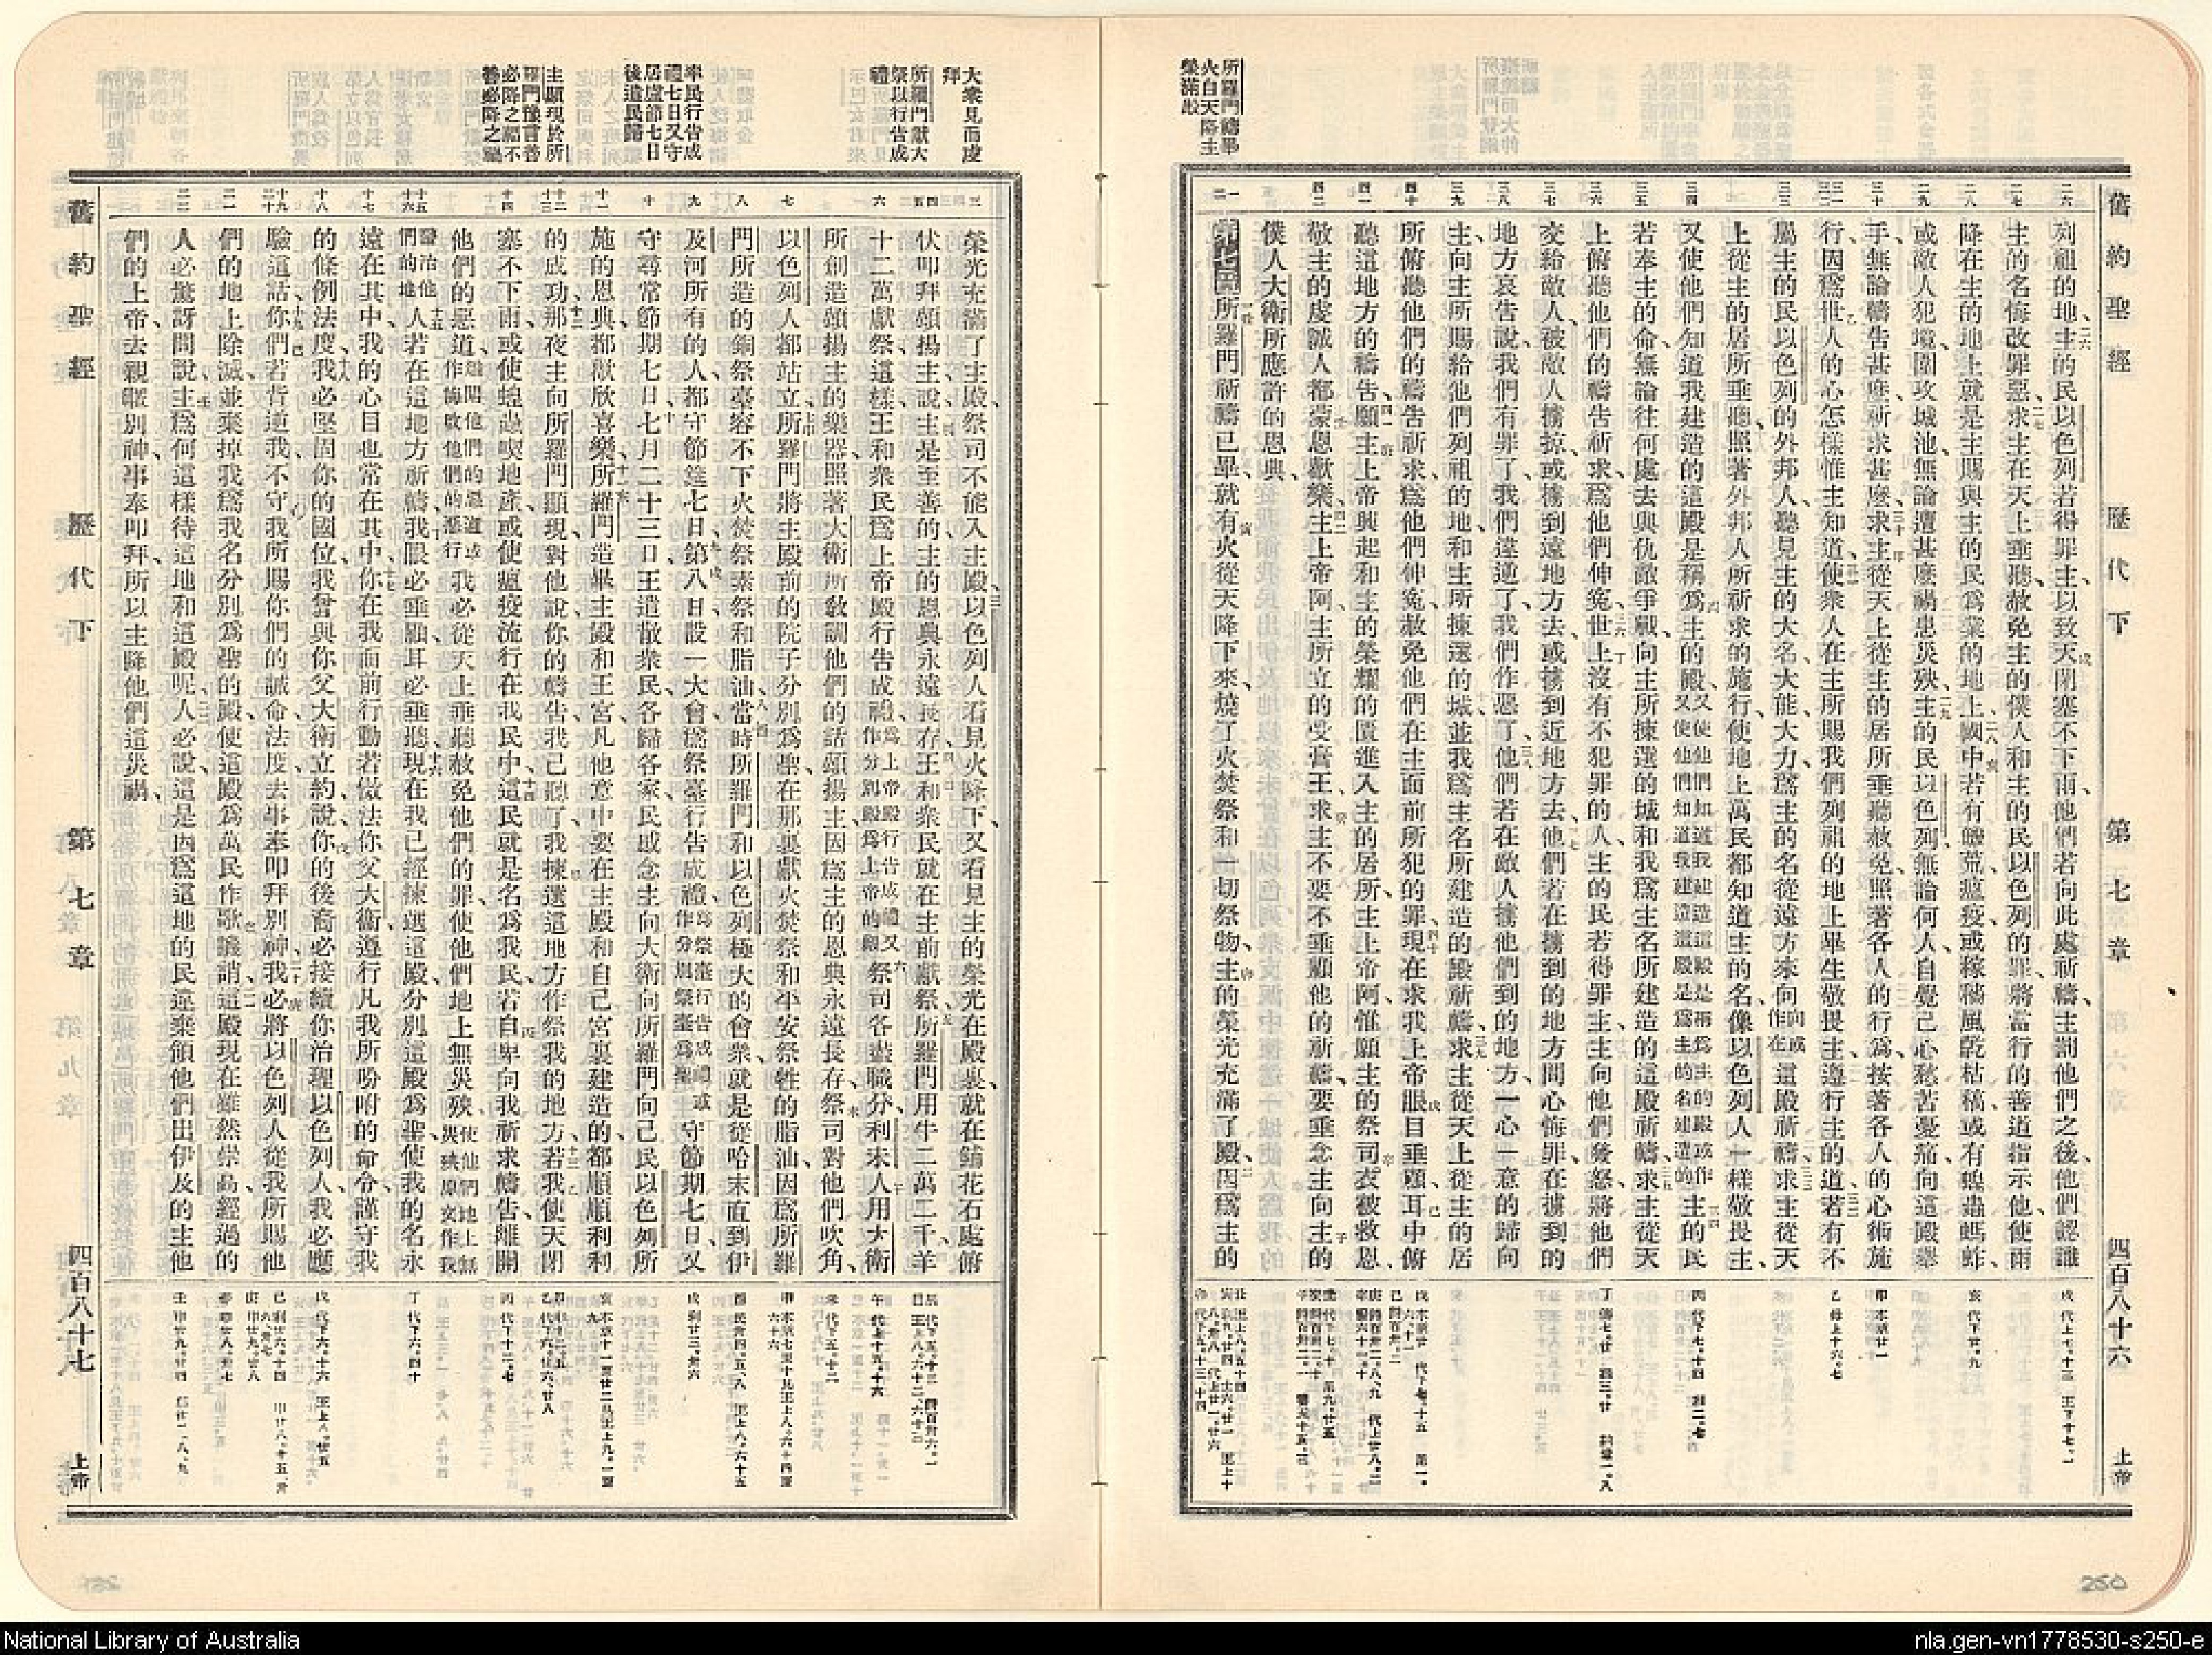 舊約聖經 歷代下 第七章 四百八十六 上帝
所羅門禱畢
火自天降主
榮滿殿
列祖的地、主的民以色列若得罪主、以致天閉塞不下雨、他們若向此處祈禱、主罰他們之後、他們認識
主的名、悔改罪惡、求主在天上垂聽、赦免主的僕人和主的民以色列的罪、將當行的善道指示他、使雨
降在主的地上、就是主賜與主的民爲業的地上、國中若有饑荒瘟疫、或稼穡風乾枯槁、或有蝗蟲螞蚱、
或敵人犯境、圍攻城池、無論遭甚麽禍患災殃、主的民以色列、無論何人、自覺己心愁苦憂痛、向這殿舉
手、無論禱告甚麽、祈求甚麽、求主從天上從主的居所垂聽赦免、照著各人的行爲、按著各人的心術施
行、因爲世人的心怎樣、惟主知道、使衆人在主所賜我們列祖的地上、畢生敬畏主、遵行主的道、若有不
屬主的民以色列的外邦人、聽見主的大名、大能大力、爲主的名從遠方來向這殿祈禱、求主從天
上從主的居所垂聽、照著外邦人所祈求的施行、使地上萬民都知道主的名、像以色列人一樣敬畏主、
又使他們知道我建造的這殿、是稱爲主的殿、主的民
若奉主的命、無論往何處去與仇敵爭戰、向主所揀選的城、和我爲主名所建造的這殿祈禱、求主從天
上俯聽他們的禱告祈求、爲他們伸寃、世上沒有不犯罪的人、主的民若得罪主、主向他們發怒、將他們
交給敵人、被敵人擄掠、或擄到遠地方去、或擄到近地方去、他們若在擄到的地方、問心悔罪、在擄到的
地方哀告說、我們有罪了、我們違逆了、我們作惡了、他們若在敵人擄他們到的地方、一心一意的歸向
主、向主所賜給他們列祖的地、和主所揀選的城、並我爲主名所建造的殿祈禱、求主從天上從主的居
所俯聽他們的禱告祈求、爲他們伸寃、赦免他們在主面前所犯的罪、現在求我上帝眼目垂顧、耳中俯
聽這地方的禱告、願主上帝興起、和主的榮耀的匱、進入主的居所、主上帝阿、惟願主的祭司衣被救恩、
敬主的虔誠人都蒙恩歡樂、主上帝阿、主所立的受膏王求主、不要不垂顧他的祈禱、要垂念主向主的
僕人大衛所應許的恩典、
第七章 所羅門祈禱已畢、就有火從天降下來、燒了火焚祭和一切祭物、主的榮光充滿了殿、因爲主的
250
大衆見而虔
拜
所羅門獻大
祭以行告成
禮
率民行告成
禮七日又守
居廬節七日
後遣民歸
主顯現於所
羅門豫言善
必降之福不
善必降之禍
榮光充滿了主殿、祭司不能入主殿、以色列人看見火降下、又看見主的榮光在殿裏、就在鋪花石處俯
伏叩拜、頌揚主、說主是至善的、主的恩典永遠長存、王和衆民就在主前獻祭、所羅門用牛二萬二千、羊
十二萬獻祭、這樣王和衆民爲上帝殿行告成禮、祭司各盡職分、利未人用大衛
所創造頌揚主的樂器、照著大衛所敎訓他們的話頌揚主、因爲主的恩典永遠長存、祭司對他們吹角、
以色列人都站立、所羅門將主殿前的院子分別爲聖、在那裏獻火焚祭和平安祭牲的脂油、因爲所羅
門所造的銅祭臺容不下火焚祭素祭和脂油、當時所羅門和以色列極大的會衆、就是從哈末直到伊
及河所有的人、都守節筵七日、第八日設一大會、爲祭臺行告成禮守節期七日、又
守尋常節期七日、七月二十三日、王遣散衆民、各歸各家、民感念主向大衛向所羅門向己民以色列所
施的恩典、都歡欣喜樂、所羅門造畢主殿和王宮、凡他意中要在主殿和自己宮裏建造的、都順順利利
的成功、那夜主向所羅門顯現、對他說、你的禱告我已聽了、我揀選這地方作祭我的地方、若我使天閉
塞不下雨、或使蝗蟲喫地產、或使瘟疫流行在我民中、這民就是名爲我民、若自卑向我祈求禱告、離開
他們的惡道、我必從天上垂聽、赦免他們的罪、使他們地上無災殃
人若在這地方祈禱、我眼必垂顧、耳必垂聽、現在我已經揀選這殿、分別這殿爲聖、使我的名永
遠在其中、我的心目也常在其中、你在我面前行動、若傚法你父大衛、遵行凡我所吩咐的命令、謹守我
的條例法度、我必堅固你的國位、我曾與你父大衛立約、說你的後裔必接續你治理以色列人、我必應
驗這話、你們若背逆我、不守我所賜你們的誡命法度、去事奉叩拜別神、我必將以色列人從我所賜他
們的地上除滅、並棄掉我爲我名分別爲聖的殿、使這殿爲萬民作歌譏誚、這殿現在雖然崇高、經過的
人必驚訝問說、主爲何這樣待這地和這殿呢、人必說、這是因爲這地的民違棄領他們出伊及的主他
們的上帝、去親暱別神、事奉叩拜、所以主降他們這災禍、
舊約聖經 歷代下 第七章 四百八十七 上帝
National Library of Australia
nla.gen-vn1778530-s250-e